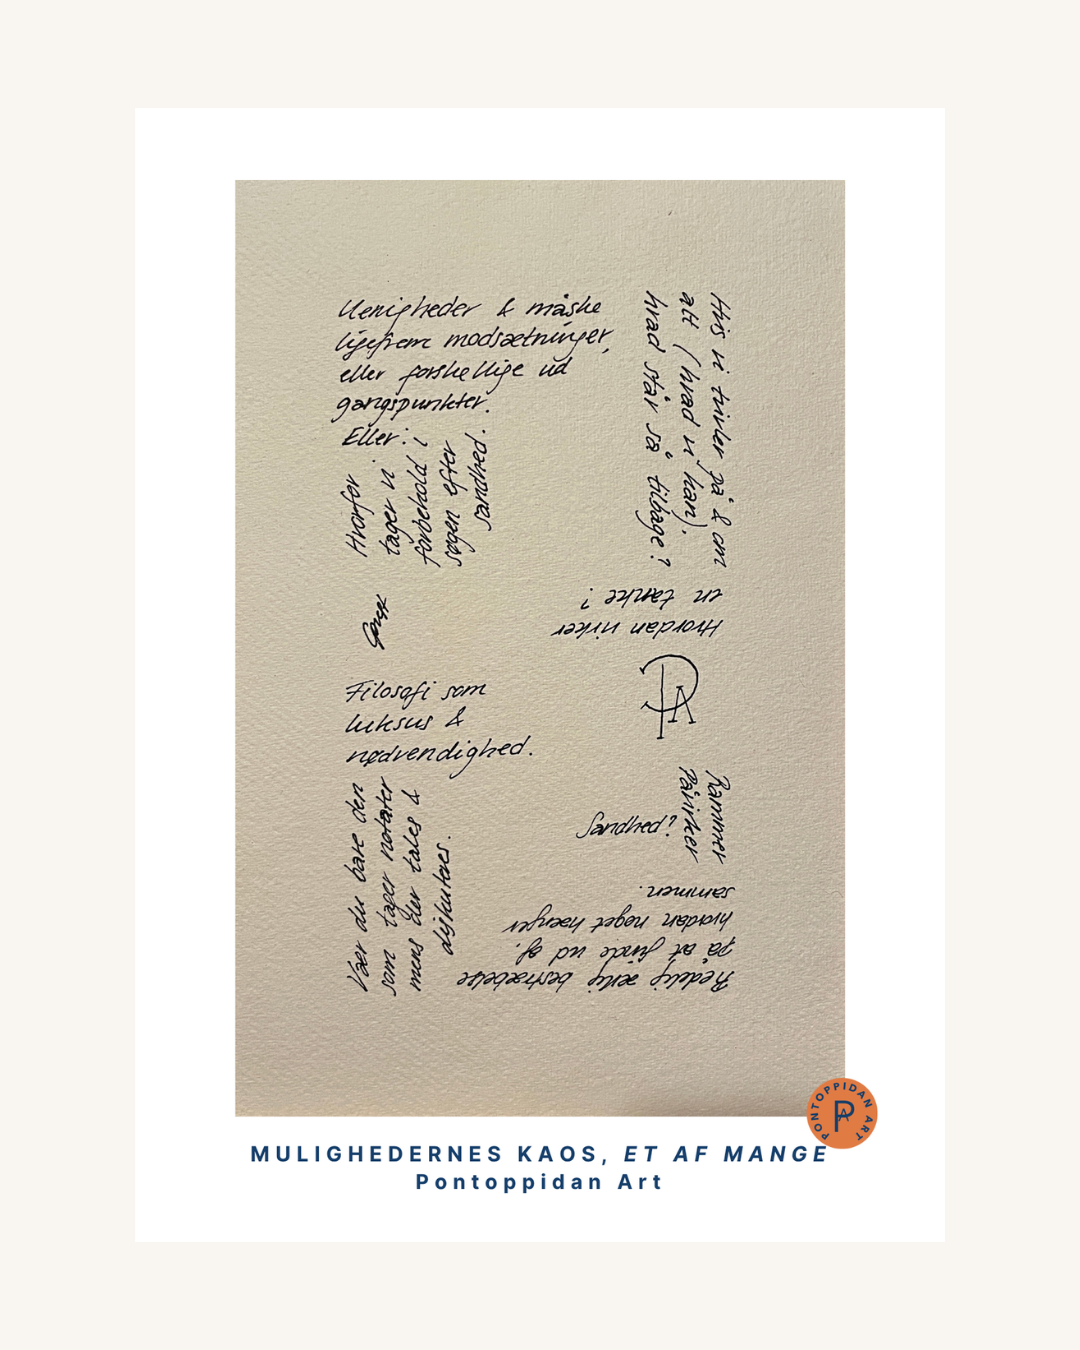 Uenigheder & måske
ligefrem modsætninger,
eller forskellige ud
gangspunkter.
Eller:
Hvorfor
tager vi
forbehold i
søgen efter
sandhed.
Hvis vi tvivler på & om
alt (hvad vi kan),
hvad står så tilbage?
Hvordan virker
en tanke?
Filosofi som
luksus &
nødvendighed.
Vær du bare den
som tager notater
mens der tales &
diskuteres.
Rammer
Påvirker
Sandhed?
Redelig ærlig bestræbelse
på at finde ud af,
hvordan noget hænger
sammen.
PA
PONTOPPIDAN ART
PA
MULIGHEDERNES KAOS, ET AF MANGE
Pontoppidan Art